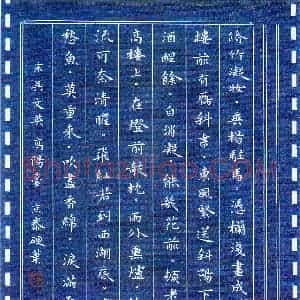 脩竹凝妝。垂楊駐馬。憑欄淺畫成
樓前有雁斜書。東風緊送斜陽下
酒醒餘。自消凝。能幾花前。頓老
高樓上。在燈前欹枕。雨外熏爐
流可奈清臞。飛紅若到西湖底。
愁魚。莫重來。吹盡香綿。淚滿
宋吳文英 高陽臺 京泰硬筆